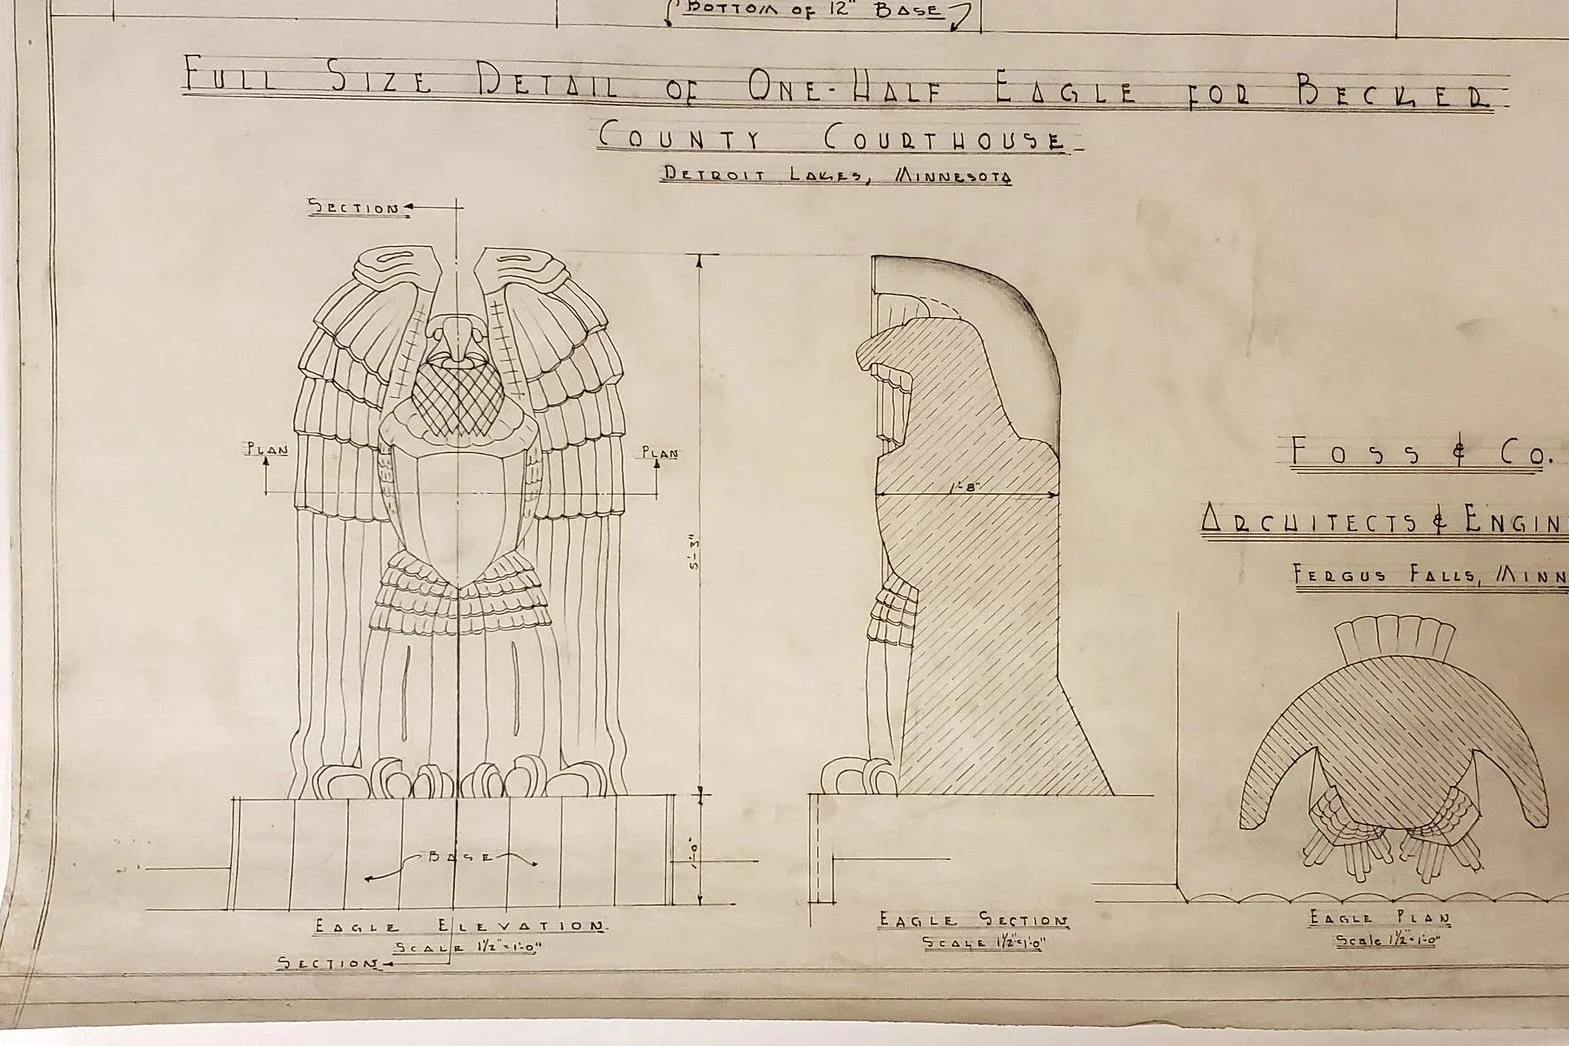 BOTTOM OF 12" BASE
FULL SIZE DETAIL OF ONE-HALF EAGLE FOR BECKER
COUNTY COURTHOUSE
DETROIT LAKES, MINNESOTA
SECTION
PLAN
PLAN
5'-3"
1'-8"
BASE
1'-0"
EAGLE ELEVATION
SCALE 1½"=1'-0"
SECTION
EAGLE SECTION
SCALE 1½"=1'-0"
FOSS & CO.
ARCHITECTS & ENGIN
FERGUS FALLS, MINN
EAGLE PLAN
Scale 1½"=1'-0"